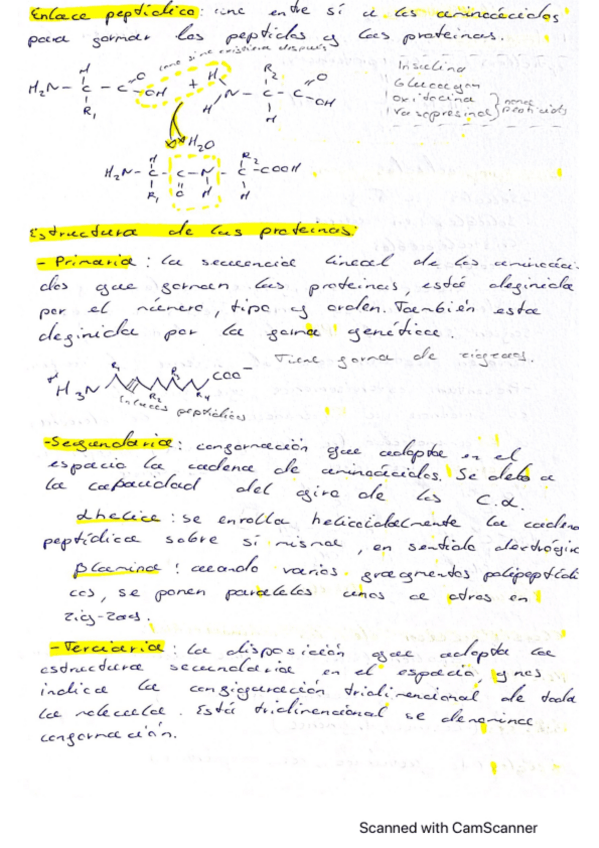 Enlace peptídico: une entre sí a los aminoácidos
para formar los peptidos y las proteínas.
(como si no existiera después)
H₂N - C - C - OH + H N - C - C - OH
H O R₁ H H R₂ O H
Insulina
Glucagon
oxitocina
vasopresina
nona
peptidos
H₂O
H₂N - C - C - N - C - COOH
H R₁ O H R₂ H
Estructura de las proteínas:
- Primaria: la secuencia lineal de los aminoáci-
dos que forman las proteínas, está definida
por el número, tipo y orden. También esta
definida por la forma genética.
Tiene forma de zigzags.
H₃N R₁ R₂ R₃ R₄ COO⁻
enlaces peptídicos
-Segundaria: conformación que adopta en el
espacio la cadena de aminoácidos. Se debe a
la capacidad del giro de los C.α.
αhelice: se enrolla helicoidalmente la cadena
peptídica sobre sí misma, en sentido dextrógiro
βlamina: cuando varios fragmentos polipeptídi
cos, se ponen paralelos unos a otros en
zig-zags.
- Terciaria: la disposición que adopta la
estructura secundaria en el espacio, y nos
indica la configuración tridimencional de toda
la molecula. Está tridimencional se denomina
conformación.
Scanned with CamScanner